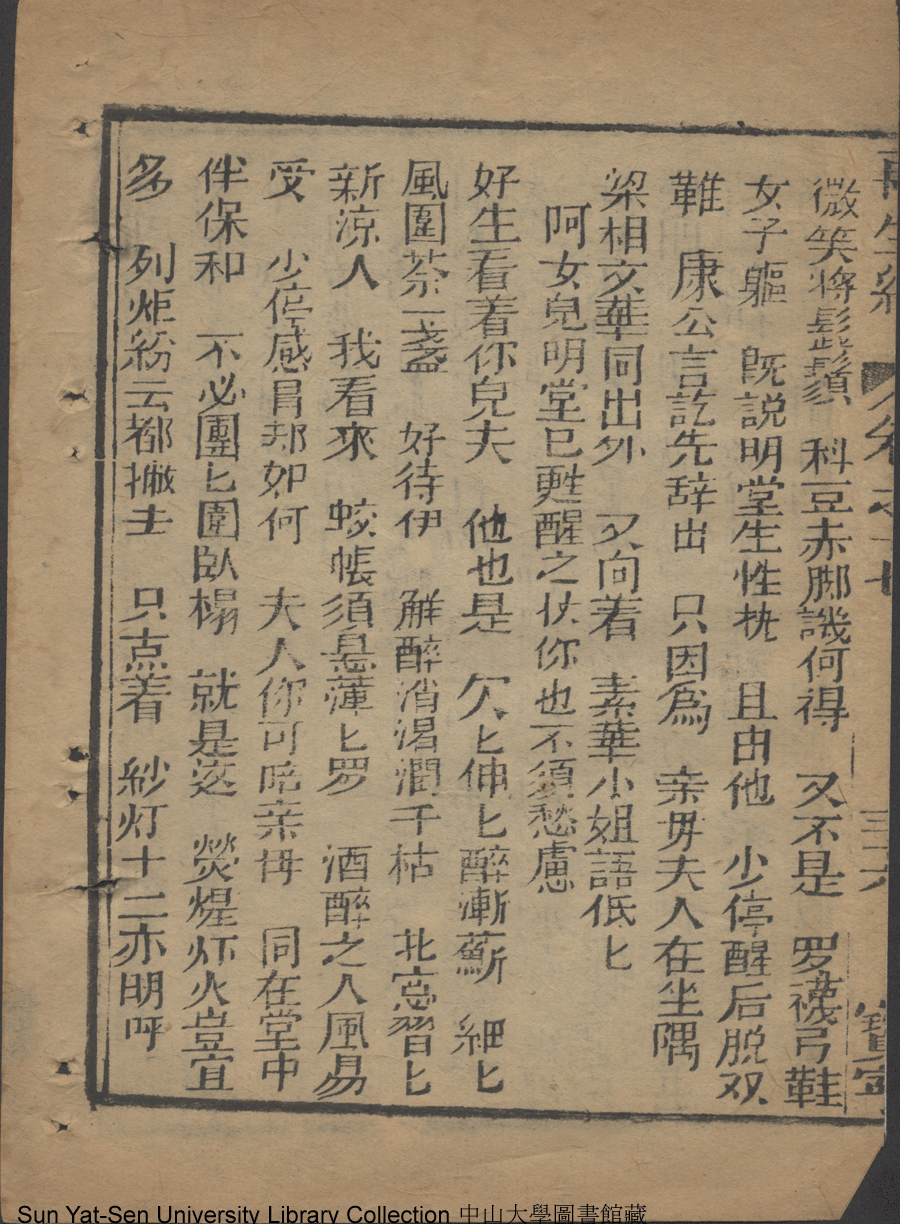 再生緣 卷之十七 三六 寶寧
微笑將髭鬚 科豆赤脚譏何得 又不是 罗襪弓鞋
女子軀 既説明堂生性執 且由他 少停醒后脱双
鞋 康公言訖先辞出 只因爲 亲毋夫人在坐隅
梁相文華同出外 又向着 素華小姐語低匕
呵女兒明堂已甦醒之伏你也不須愁慮
好生看着你兒夫 他也是 欠匕伸匕醉漸蘇 細匕
風圍茶一盞 好待伊 觧醉消渴潤干枯 北窓習匕
新涼人 我看來 蛟帳須懸薄匕罗 酒醉之人風易
受 少停感冐却如何 夫人你可陪亲毋 同在堂中
伴保和 不必團匕圍臥榻 就是这 熒煌灯火豈宜
多 列炬紛云都撤去 只点着 紗灯十二亦明呼
Sun Yat-Sen University Library Collection 中山大學圖書館藏